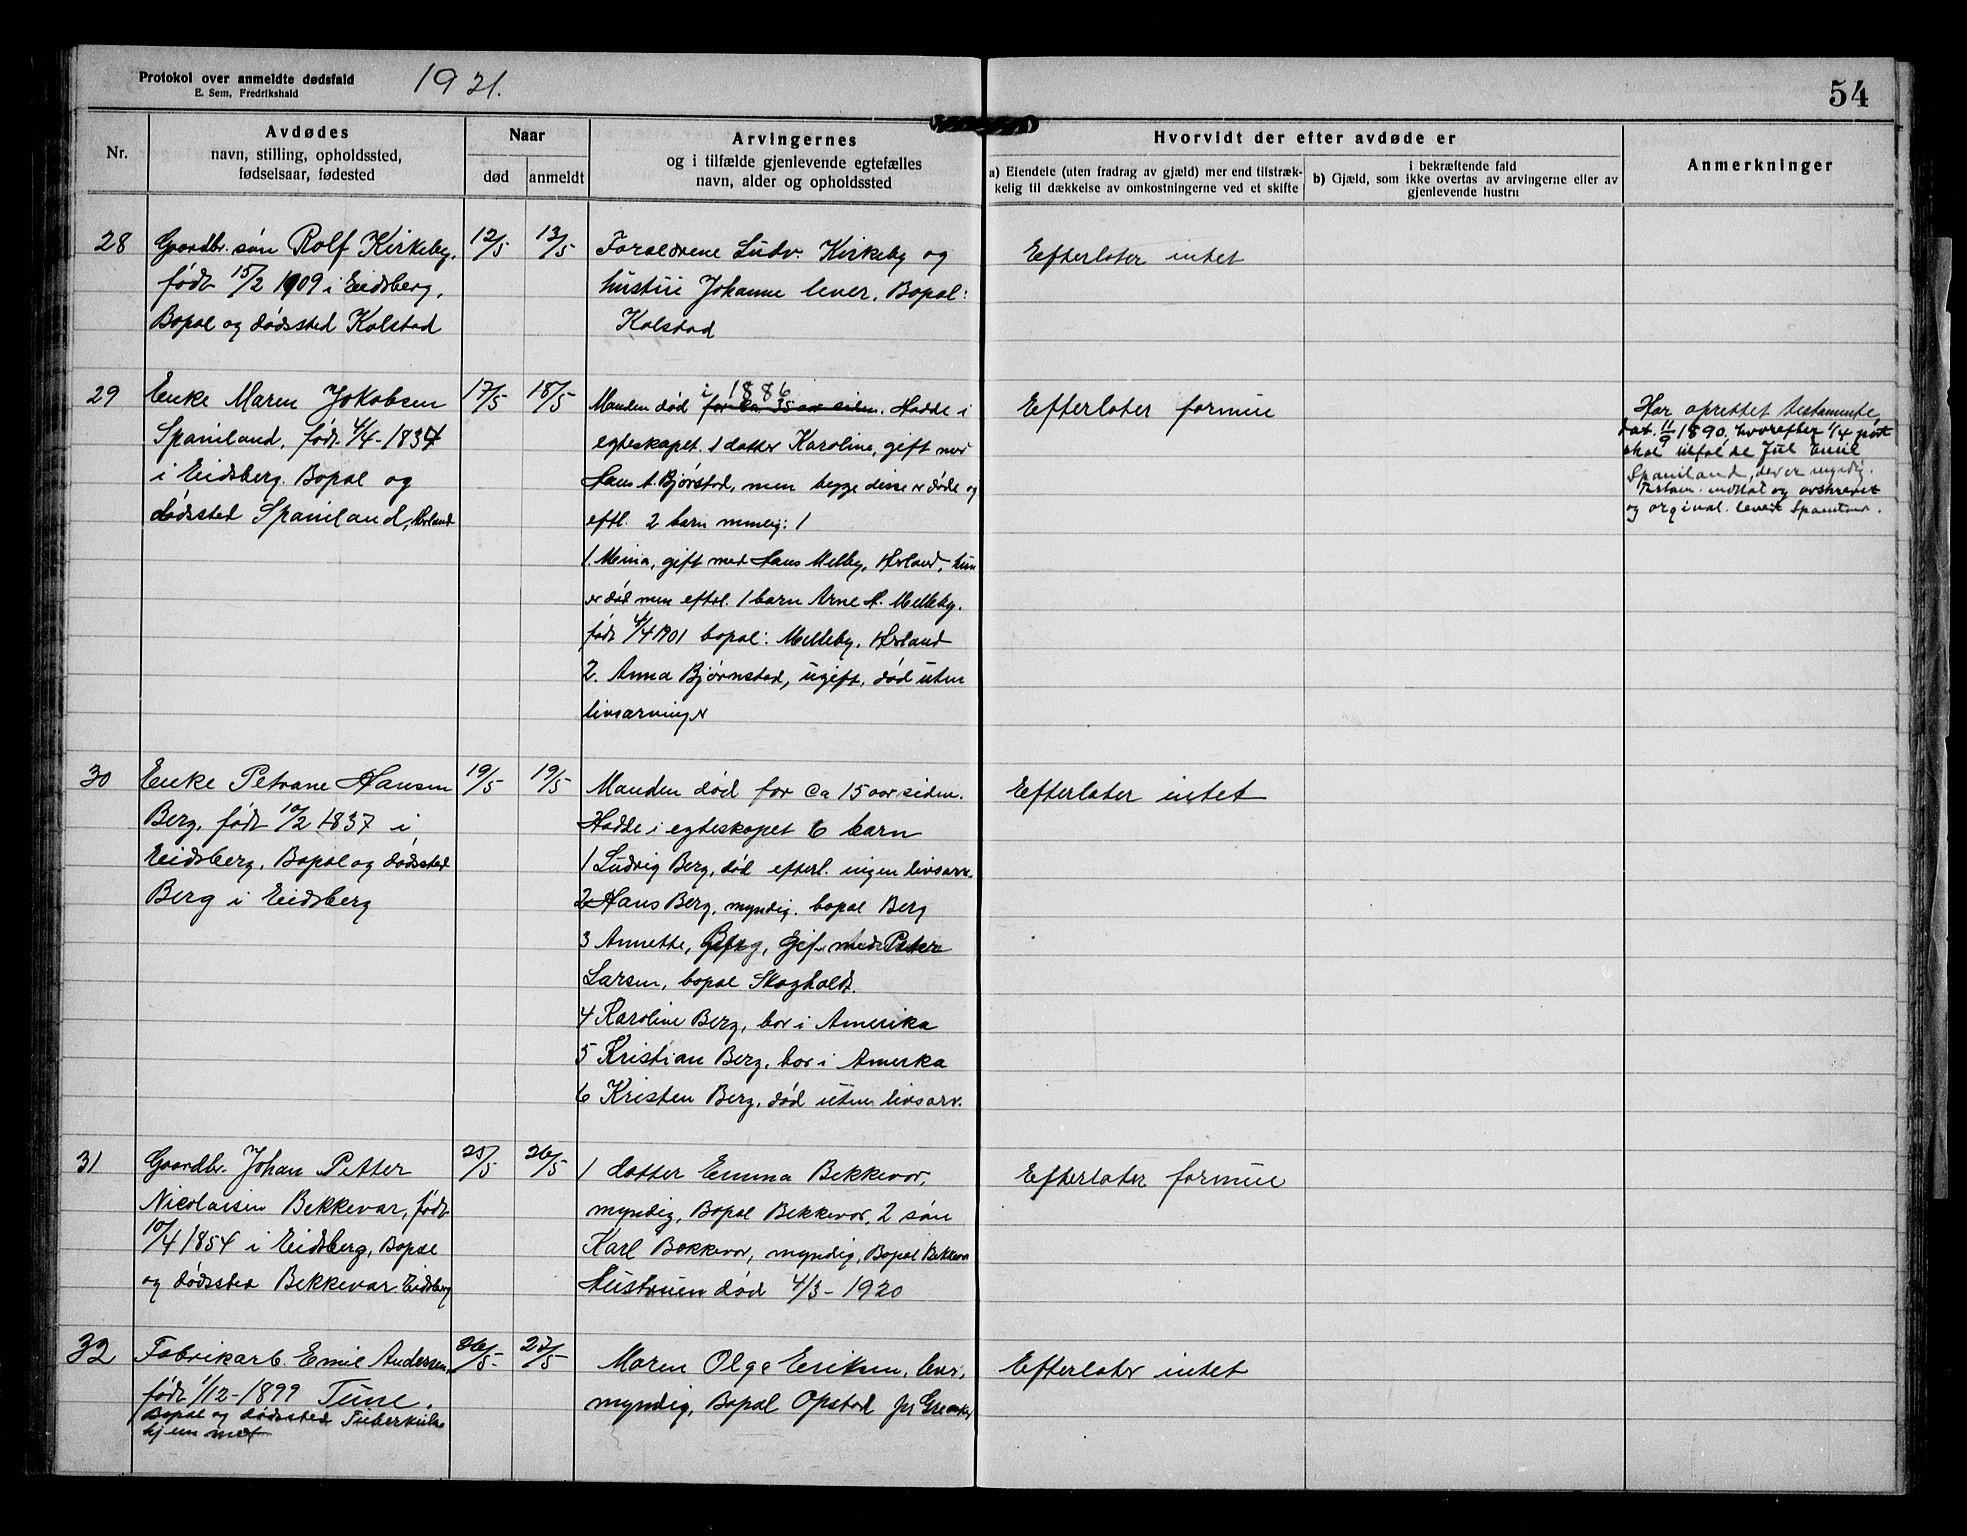 Protokol over anmeldte dødsfald
E. Sem, Fredrikshald
1921.
54
Nr.
Avdødes
navn, stilling, opholdssted,
fødselsaar, fødested
Naar
død
anmeldt
Arvingernes
og i tilfælde gjenlevende egtefælles
navn, alder og opholdssted
Hvorvidt der efter avdøde er
a) Eiendele (uten fradrag av gjæld) mer end tilstræk-
kelig til dækkelse av omkostningerne ved et skifte
i bekræftende fald
b) Gjæld, som ikke overtas av arvingerne eller av
gjenlevende hustru
Anmerkninger
28
Gaardbr. søn Rolf Kirkeby,
født 15/2 1909 i Eidsberg,
Bopæl og dødssted Kolstad
12/5
13/5
Forældrene Ludv. Kirkeby og
hustru Johanne lever, Bopæl:
Kolstad
Efterlater intet
29
Enke Maren Jokobsen
Spaniland, født 4/4-1834
i Eidsberg. Bopæl og
dødssted Spaniland, Hærland
17/5
18/5
i 1886
Manden død for ca 35 aar siden. Hadde i
egteskapet 1 datter Karoline, gift med
Hans A. Bjørstad, men begge disse er døde og
eftl. 2 barn nmlig: 1
1. Mina, gift med Hans Melby, Hærland, hun
er død men eftal. 1 barn Arne H. Melleby,
født 4/4 1901 bopæl: Melleby, Hærland
2. Anna Bjørnstad, ugift, død uten
livsarvinger
Efterlater formue
Har oprettet testamente
dat. 11/9 1890, hvorefter 1/4 part
skal tilfalde Jul Emil
Spaniland, der er myndig.
Testam. indtat og avskrevet
og orginal. levert Spaniland.
30
Enke Petrane Hansen
Berg, født 10/2 1837 i
Eidsberg, Bopæl og dødssted
Berg i Eidsberg
19/5
19/5
Manden død for ca 15 aar siden.
Hadde i egteskapet 6 barn
1 Ludvig Berg, død efterl. ingen livsarv.
2 Hans Berg, myndig, bopæl Berg
3 Annette, Berg, Gif. med Peter
Larsen, bopæl Skogholdt.
4 Karoline Berg, bor i Amerika
5 Kristian Berg, bor i Amerka
6 Kristen Berg, død uten livsarv.
Efterlater intet
31
Gaardbr. Johan Petter
Nicolaisen Bekkevar, født
10/4 1854 i Eidsberg, Bopæl
og dødssted Bekkevar Eidsberg
25/5
26/5
1 datter Emma Bekkevar,
myndig, Bopæl Bekkevar, 2 søn
Karl Bekkevar, myndig, Bopæl Bekkevar
Hustruen død 4/3-1920
Efterlater formue
32
Fabrikarb. Emil Andersen,
født 1/12-1899 Tune.
Bopæl og dødssted Tuberkulose
hjemmet
26/5
27/5
Maren Olga Eriksen, lever,
myndig, Bopæl Opstad pr Greaaker
Efterlater intet